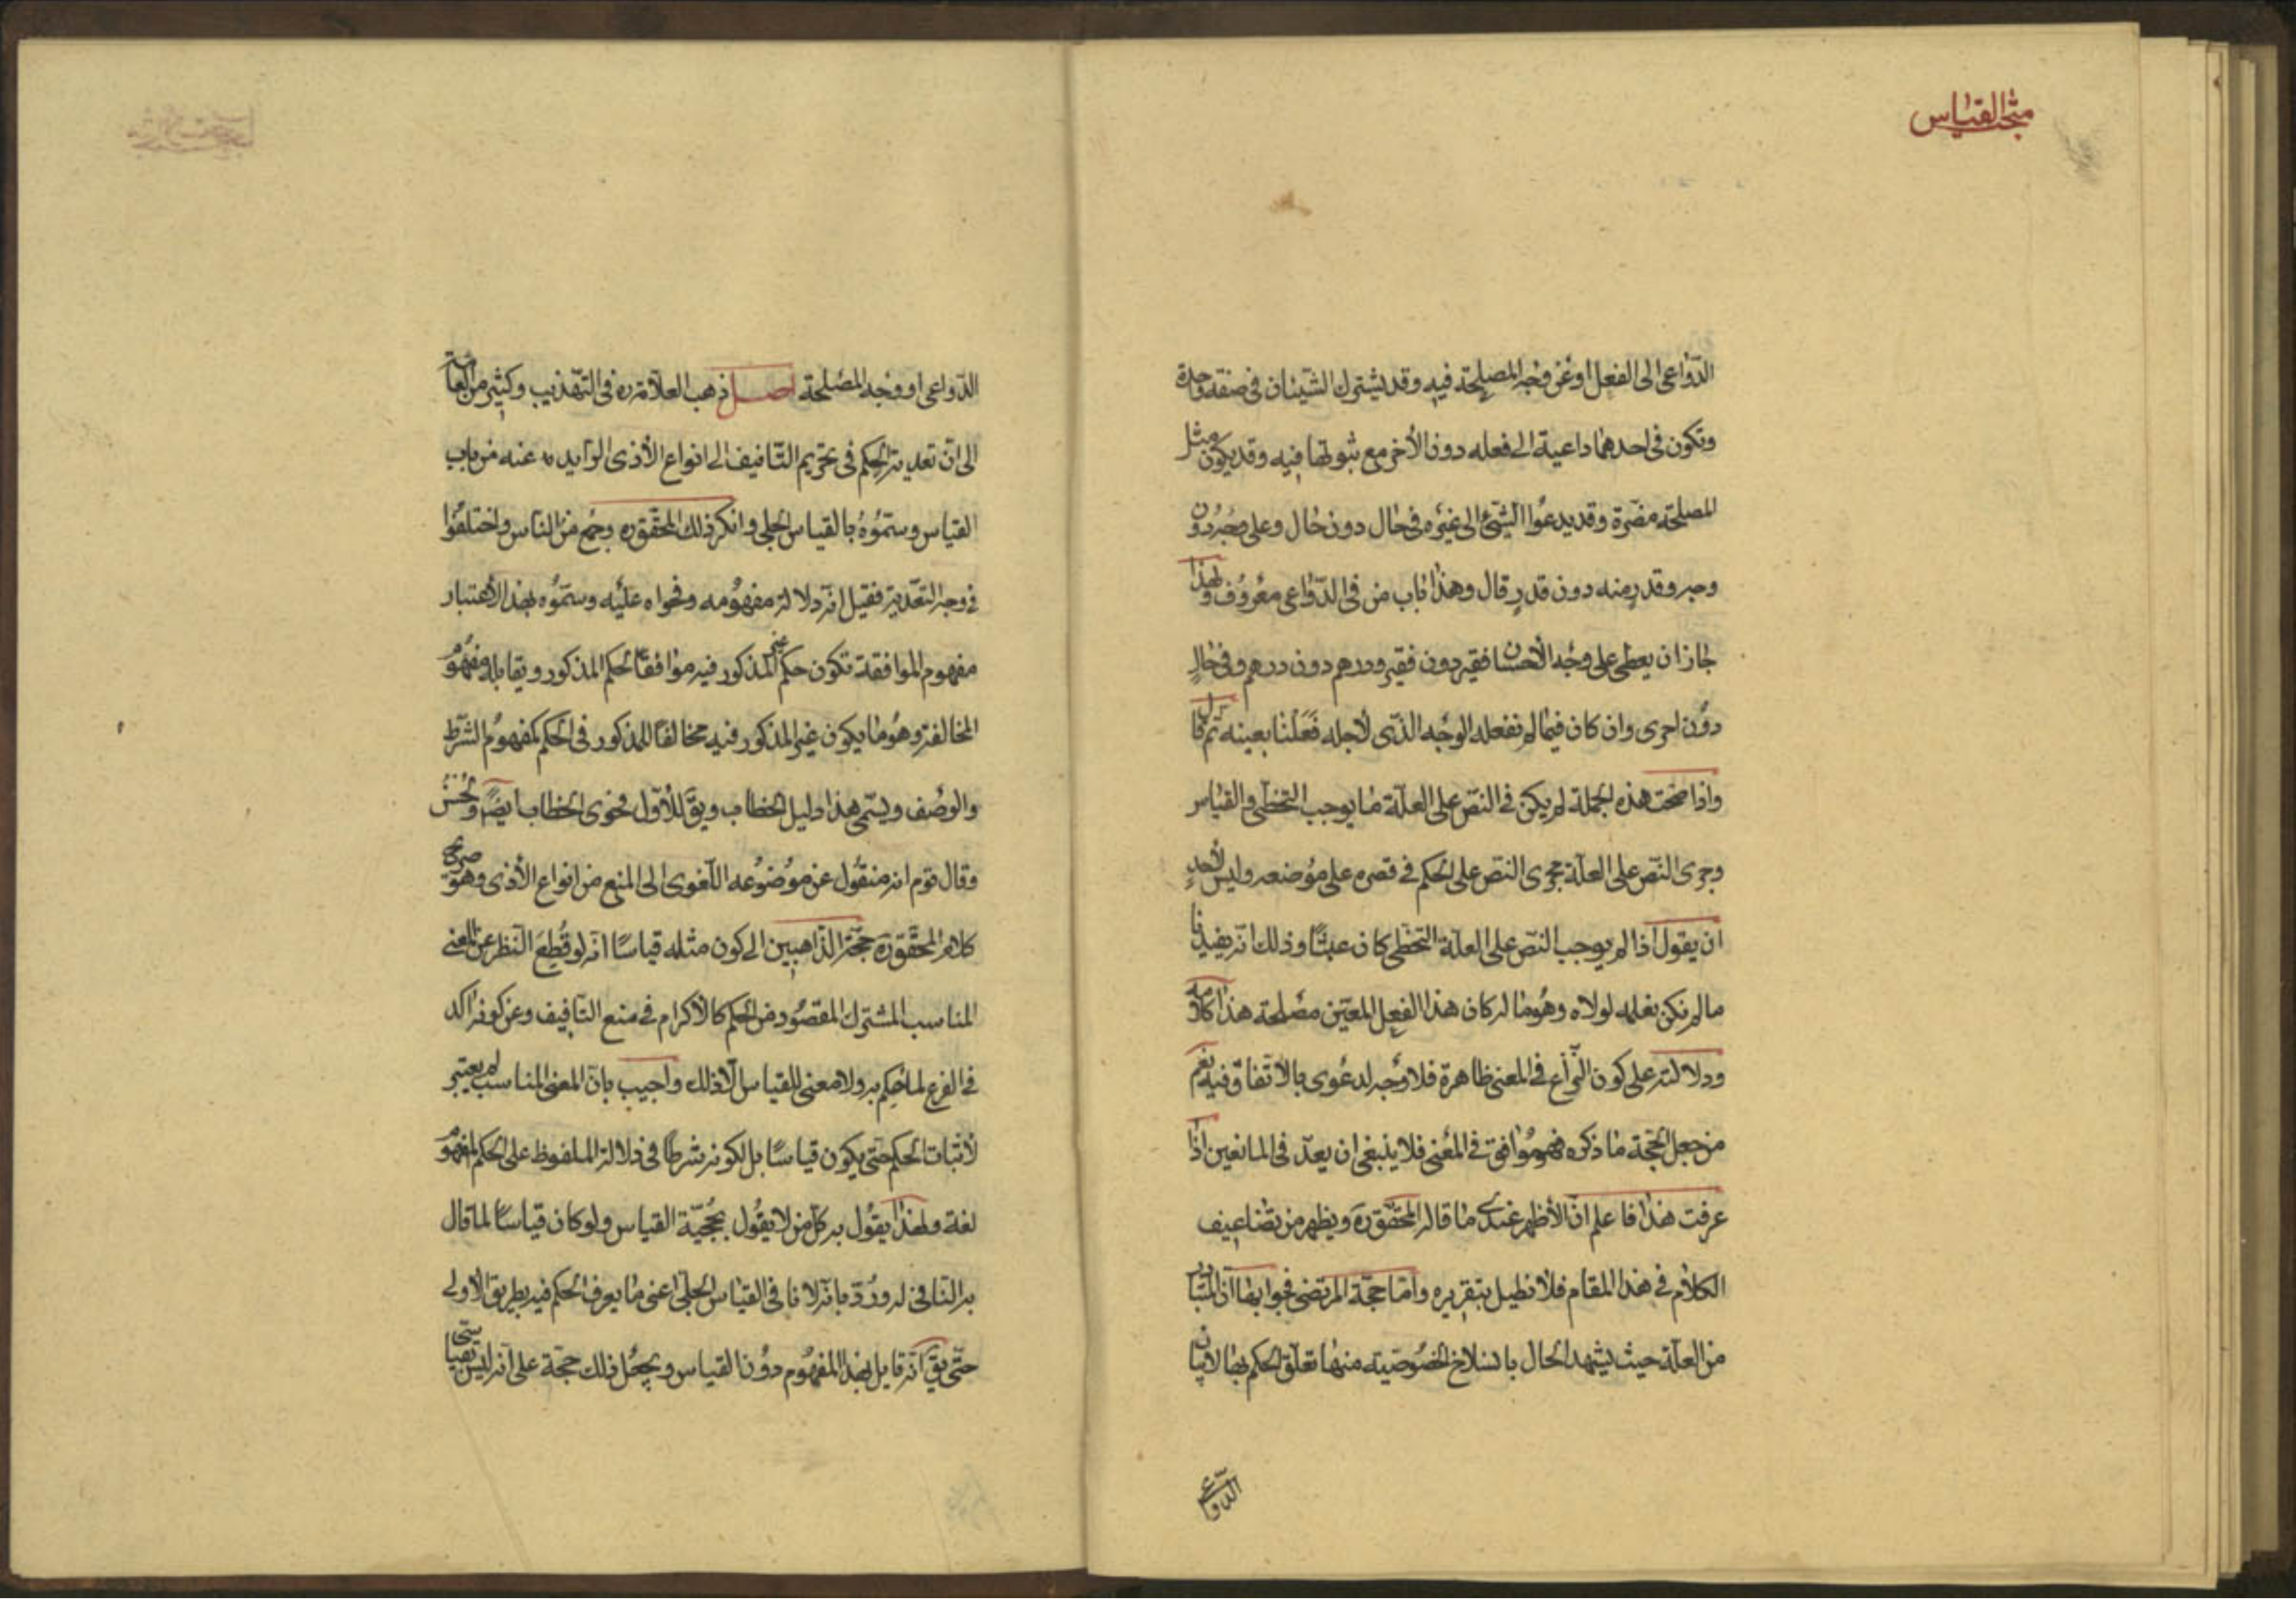 مبحث القياس
الدواعى الى الفعل او عن وجه المصلحة فيه وقد يشترك الشيئان فى صفة واحدة
وتكون فى احدهما داعية الى فعله دون الأخر مع ثبوتها فيه وقد يكون مثل
المصلحة مفسرة وقد يدعوا الشئ الى غيره فى حال دون حال وعلى وجه دون
وجه وقدر منه دون قدر قال وهذا باب من فى الدواعى معروف ولهذا
جاز ان يعطى على وجه الأحسان فقير دون فقير ودرهم دون درهم وفى حال
دون اخرى وان كان فيما لم نفعله الوجه الذى لأجله فعلنا بعينه ثم قال
واذا صحت هذه الجملة لم يكن فى النص على العلة ما يوجب التخطى والقياس
وجرى النص على العلة مجرى النص على الحكم فى قصره على موضعه وليس لأحد
ان يقول اذا لم يوجب النص على العلة التخطى كان عبثا وذلك انه يفيدنا
ما لم نكن نعلمه لولاه وهو ما له كان هذا الفعل المعين مصلحة هذا كلامه
ودلالته على كون النزاع فى المعنى ظاهرة فلا وجه لدعوى بالاتفاق فيه نعم
من جعل الحجة ما ذكره فهو موافق فى المعنى فلا ينبغى ان يعد فى المانعين اذا
عرفت هذا فاعلم ان الأظهر عندى ما قاله المحقق ره ويظهر من تضاعيف
الكلام فى هذا المقام فلا نطيل بتقريره واما حجة المرتضى فجوابها ان المتبادر
من العلة حيث يشهد الحال بانسلاخ الخصوصية منها تعلق الحكم بها لا بيان
الدواعى
الدواعى او وجه المصلحة اصل ذهب العلامة ره فى التهذيب وكثير من العامة
الى ان تعدية الحكم فى تحريم التأفيف الى انواع الأذى الزايد عنه من باب
القياس وسموه بالقياس الجلى وانكر ذلك المحقق ره وجمع من الناس واختلفوا
فى وجه التعدية فقيل انه دلالة مفهومه وفحواه عليه وسموه بهذا الاعتبار
مفهوم الموافقة تكون حكم غير المذكور فيه موافقا لحكم المذكور ويقابله مفهوم
المخالفة وهو ما يكون غير المذكور فيه مخالفا للمذكور فى الحكم كمفهوم الشرط
والوصف ويسمى هذا دليل الخطاب ويق للأول فحوى الخطاب ايضا ولحن
وقال قوم انه منقول عن موضوعه اللغوى الى المنع من انواع الأذى وهو صريح
كلام المحقق ره حجة الذاهبين الى كون مثله قياسا انه لو قطع النظر عن المعنى
المناسب المشترك المقصود من الحكم كالاكرام فى منع التأفيف وعن كونه اكد
فى الفرع لما حكم به ولا معنى للقياس الا ذلك واجيب بان المعنى المناسب لم يعتبر
لأثبات الحكم حتى يكون قياسا بل لكونه شرطا فى دلالة الملفوظ على الحكم المفهوم
لغة ولهذا يقول به كل من لا يقول بحجية القياس ولو كان قياسا لما قال
به النافى له ورد بانه لا نافى القياس الجلى اعنى ما يعرف الحكم فيه بطريق الاولى
حتى يق انه قايل بهذا المفهوم دون القياس ويجعل ذلك حجة على انه ليس بقياس